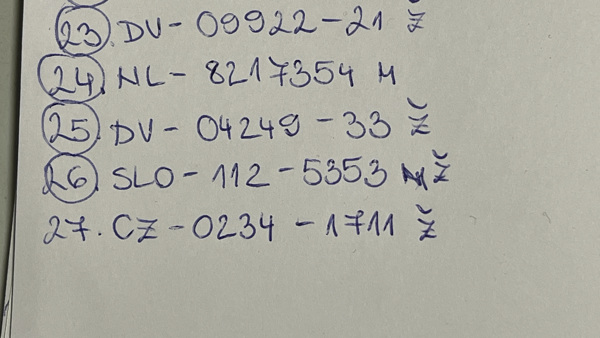 23. DV - 09922 - 21 Ž
24. NL - 8217354 M
25. DV - 04249 - 33 Ž
26. SLO - 112 - 5353 Ž
27. CZ - 0234 - 1711 Ž